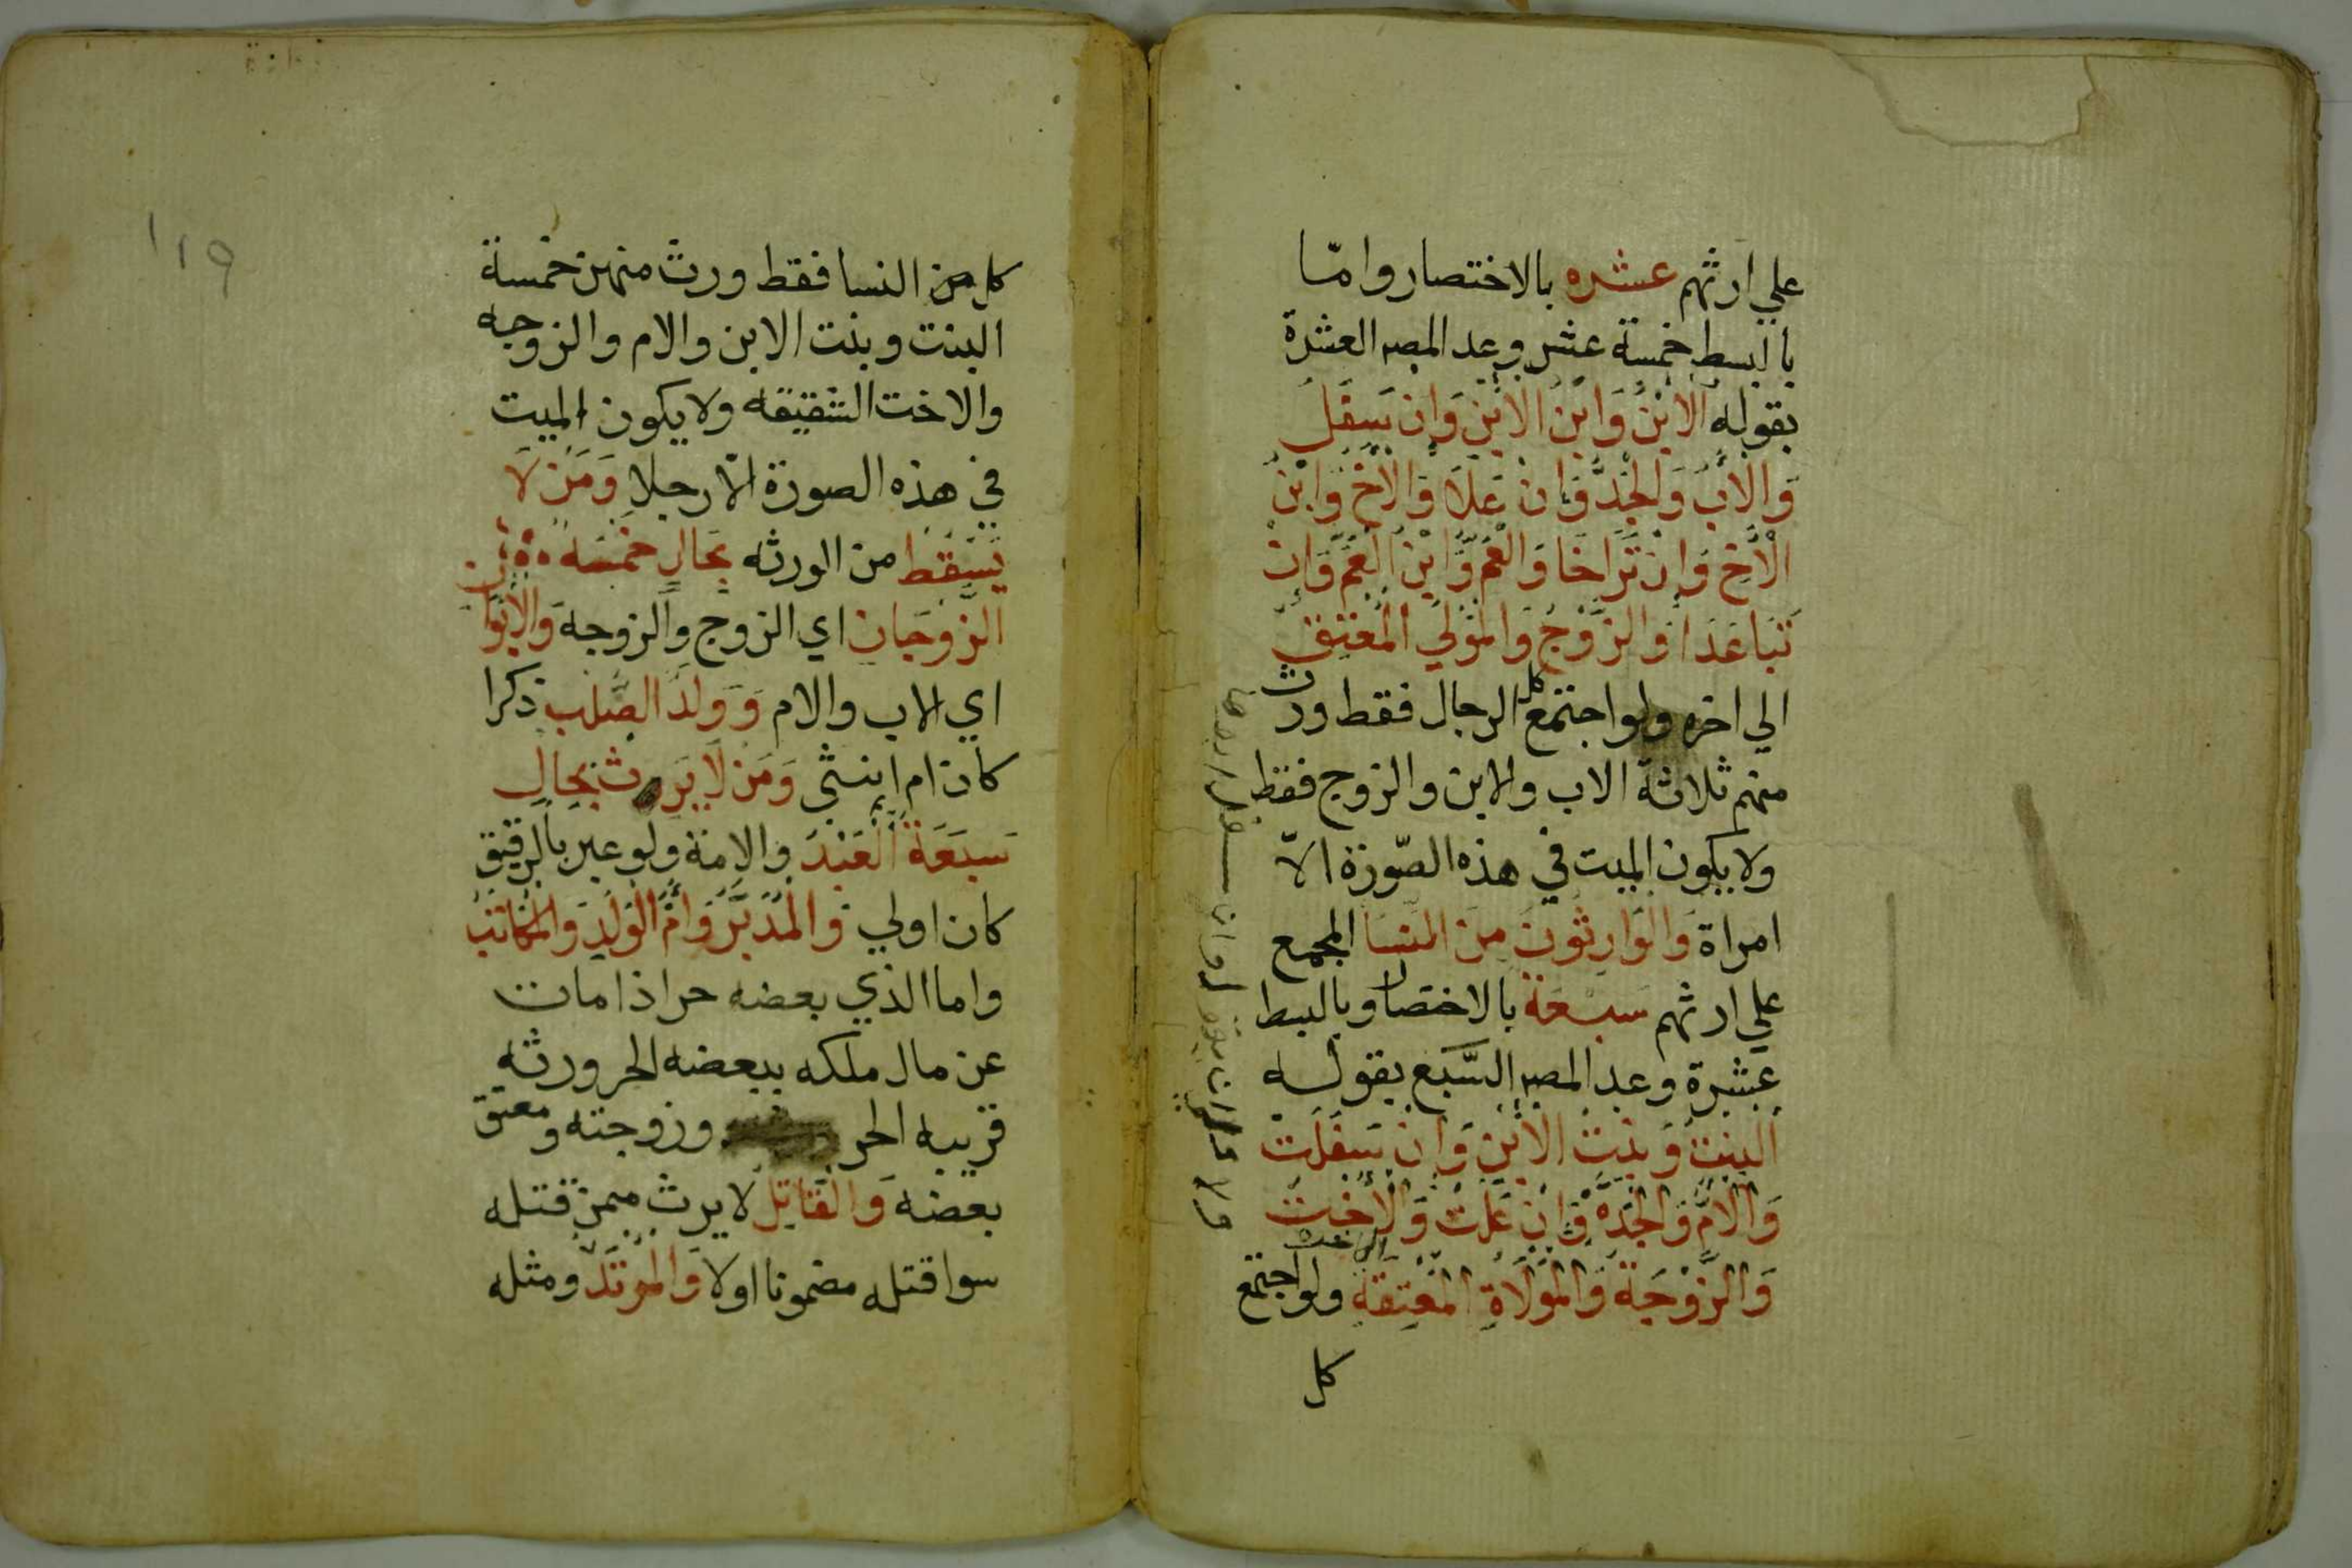 علي ارثهم عشره بالاختصار وامّا
بالبسط خمسة عشر وعد المصـ العشرة
بقوله الابْنُ وَابْن الابْنِ وَاِن سَفَلَ
وَالاَبُ وَالجَدُّ وَاِن عَلاَ وَالاَخُ وَابْنُ
الْاَخِ وَاِن تَرَاخَا وَالْعَمُّ وَابْنُ العَمِّ وَاِن
تَبَاعَدَا وَالزَّوْجُ وَالمَوْلَي المُعْتِقُ
الي اخره ولو اجتمع كل الرجال فقط ورث
منهم ثلاثة الاب والابن والزوج فقط
ولا يكون الميت في هذه الصّورة الاّ
امراة وَالوَارِثُونَ مِنَ النسَا المجمع
علي ارثهم سبعة بالاختصار وبالبسط
عشرة وعد المصـ السَّبع بقوله
البِنْتُ وَبِنْتُ الاِبْنِ وَاِن سَفَلَتْ
وَالاُمُّ وَالجَدَّةُ وَاِن عَلَتْ وَالاُخْتُ
وَالزَّوْجَةُ وَالمَوْلَاةُ المُعْتِقَةُ ولو اجتمع
كل
كل من النسا فقط ورث منهن خمسة
البنت وبنت الابن والام والزوجه
والاخت الشقيقه ولا يكون الميت
في هذه الصورة الاّ رجلا وَمَن لَا
يَسْقُطُ من الورثه بحالٍ خمسَه
الزَّوجَانِ اي الزوج والزوجة وَالاَبَوَان
اي الاب والام وَوَلَدُ الصُّلبِ ذكرا
كان ام انثي وَمَن لَا يَرِث بحَالٍ
سَبْعَة العَبْدُ والامة ولو عبر بالرقيق
كان اولي وَالمُدَبَّرُ وَاُمُّ الوَلَدِ وَالمُكَاتَبُ
واما الذي بعضه حر اذا مات
عن مال ملكه ببعضه الحر ورثه
قريبه الحر وزوجته ومعتق
بعضه وَالقَاتِل لا يرث ممن قتله
سوا قتله مضمونا اولا وَالمُرتَدُّ ومثله